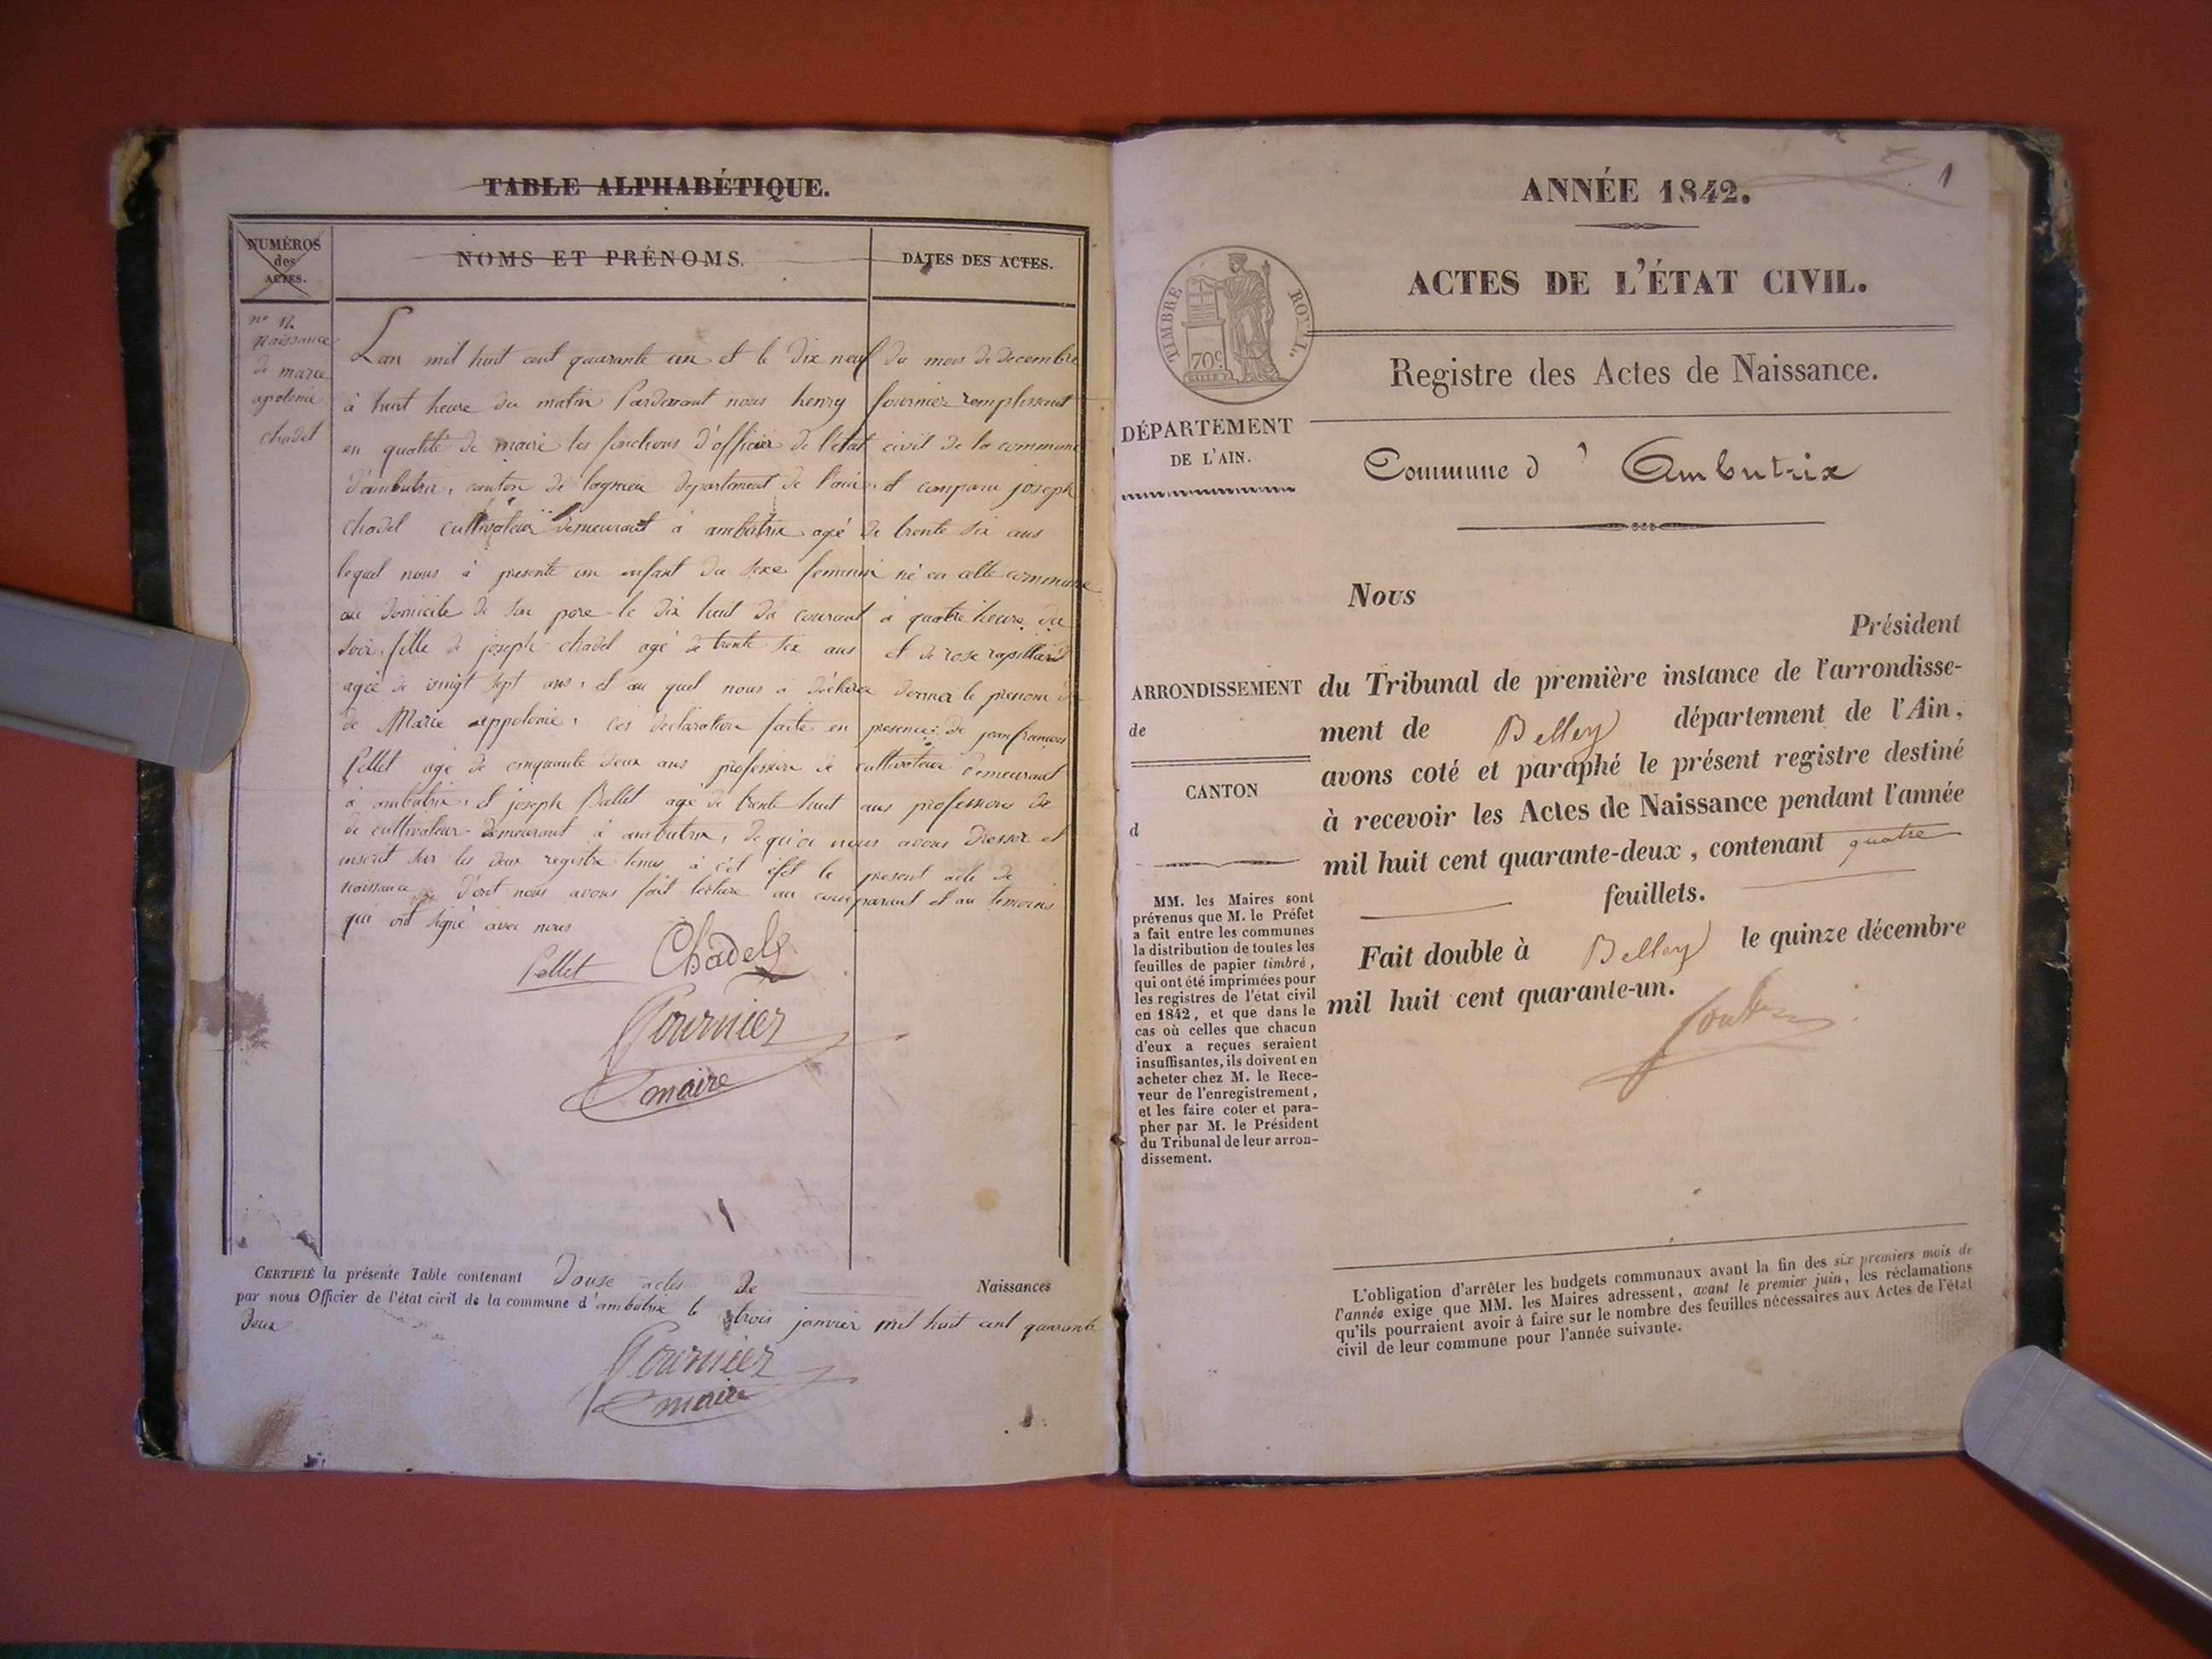 TABLE ALPHABÉTIQUE.
NUMÉROS
des
ACTES.
NOMS ET PRÉNOMS.
DATES DES ACTES.
nº 12
naissance
de marie
apolonie
chadel
Lan mil huit cent quarante un et le dix neuf du mois de decembre
à huit heure du matin Pardevant nous henry fournier remplissant
en qualité de maire les fonctions d'officier de l'état civil de la commune
d'ambutrix, canton de lagnieu departement de l'ain, et comparu joseph
chadel cultivateur demeurant a ambutrix agé de trente six ans
lequel nous à presenté un enfant du sexe feminin né en cette commune
au domicile de son pere le dix huit du courant à quatre heure du
soir, fille de joseph chadel agé de trente six ans et de rose rapillard
agée de vingt sept ans, et au quel nous a déclaré donner le prenom
de Marie appolonie, ces declaration faite en presence de jean françois
Pellet agé de cinquante deux ans profession de cultivateur demeurant
à ambutrix, et joseph Ballet agé de trente huit ans profession de
de cultivateur demeurant à ambutrix, de qu'oi nous avons dresser et
inscrit sur les deux registre tenus à cét éfet le present acte de
naissance dont nous avons fait lecture au comparant et au temoins
qui ont signé avec nous
Pellet Chadel
Fournier
maire
CERTIFIÉ la présente Table contenant douse actes de Naissances
par nous Officier de l'état civil de la commune d'ambutrix le trois janvier mil huit cent quarante
deux
Fournier
maire
1
ANNÉE 1842.
ACTES DE L'ÉTAT CIVIL.
TIMBRE ROYAL.
70c
Registre des Actes de Naissance.
DÉPARTEMENT
DE L'AIN.
Commune d'Ambutrix
Nous
Président
ARRONDISSEMENT
de
CANTON
d
du Tribunal de première instance de l'arrondisse-
ment de Belley département de l'Ain,
avons coté et paraphé le présent registre destiné
à recevoir les Actes de Naissance pendant l'année
mil huit cent quarante-deux, contenant quatre
feuillets.
Fait double à Belley le quinze décembre
mil huit cent quarante-un.
MM. les Maires sont
prévenus que M. le Préfet
a fait entre les communes
la distribution de toutes les
feuilles de papier timbré,
qui ont été imprimées pour
les registres de l'état civil
en 1842, et que dans le
cas où celles que chacun
d'eux a reçues seraient
insuffisantes, ils doivent en
acheter chez M. le Rece-
veur de l'enregistrement,
et les faire coter et para-
pher par M. le Président
du Tribunal de leur arron-
dissement.
L'obligation d'arrêter les budgets communaux avant la fin des six premiers mois de
l'année exige que MM. les Maires adressent, avant le premier juin, les réclamations
qu'ils pourraient avoir à faire sur le nombre des feuilles nécessaires aux Actes de l'état
civil de leur commune pour l'année suivante.